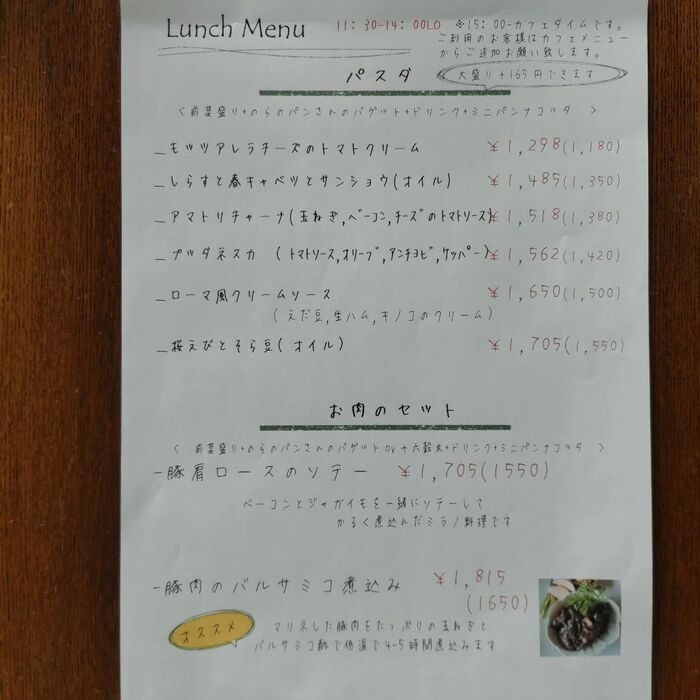 Lunch Menu
11:30-14:00LO ※15:00-カフェタイムです。
ご利用のお客様はカフェメニュー
からご追加お願い致します。
パスタ
大盛り+165円できます
〈 前菜盛り+のらのパンさんのバゲット+ドリンク+ミニパンナコッタ 〉
_モッツアレラチーズのトマトクリーム ¥1,298(1,180)
_しらすと春キャベツとサンショウ(オイル) ¥1,485(1,350)
_アマトリチャーナ(玉ねぎ,ベーコン,チーズのトマトソース) ¥1,518(1,380)
_プッタネスカ (トマトソース,オリーブ,アンチョビ,ケッパー) ¥1,562(1,420)
_ローマ風クリームソース ¥1,650(1,500)
(えだ豆,生ハム,キノコのクリーム)
_桜えびとそら豆(オイル) ¥1,705(1,550)
お肉のセット
〈 前菜盛り+のらのパンさんのバゲットor十六穀米+ドリンク+ミニパンナコッタ 〉
-豚肩ロースのソテー ¥1,705(1550)
ベーコンとジャガイモを一緒にソテーして
かるく煮込んだミラノ料理です
-豚肉のバルサミコ煮込み ¥1,815
(1650)
オススメ
マリネした豚肉をたっぷりの玉ねぎと
バルサミコ酢で低温で4-5時間煮込みます